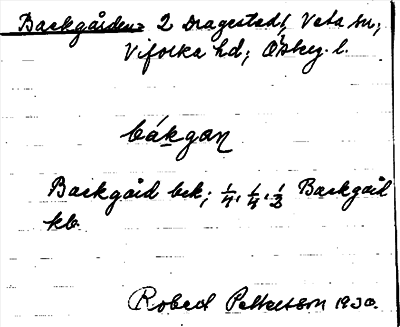 Backgården = 2 Dragestedt, Veta sn,
Vifolka hd; Österg. l.
bákgan
Backgård bek; 1/4, 1/4, 1/2 Backgård
kb.
Robert Pettersson 1930.